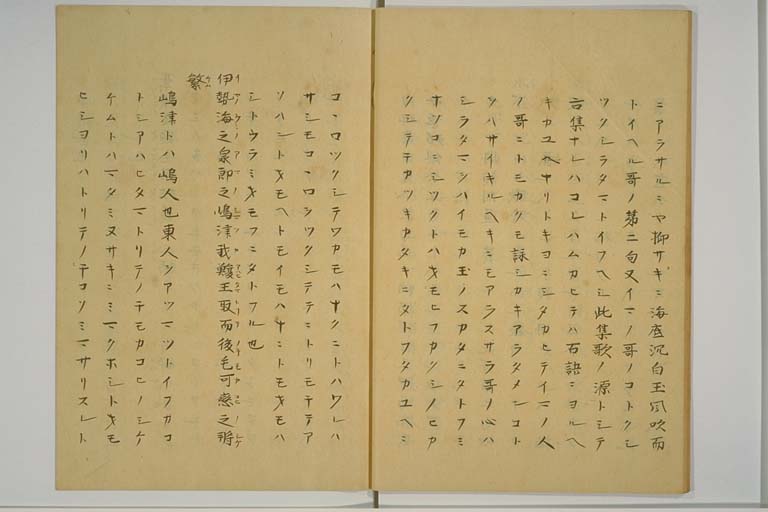 ニアラサルニヤ抑サキニ海底沉白玉風吹而
トイヘル哥ノ第二句又イマノ哥ノコトクシ
ツクシラタマトイフヘシ此集歌ノ源トシテ
古集ナレハコレハムカヒテハ古語ニヨルヘ
キカユヘナリトキヨニシタカヒテイマノ人
ノ哥ニトモカクモ詠シカキアラタメンコト
ツハサイキルヘキニモアラスサラ哥ノ心ハ
シラタマシハイモカ玉ノスカタニタトフミ
ナソコニシツクトハオモヒフカクシノヒカ
クシテテカツキカタキニタトフタカユヘニ
コヽロツクシテワカモハナクニトハワレハ
サシモコヽロシツクシテテニトリモテテア
ソハントオモヘトモイモハナニトモオモハ
シトウラミオモフニタトフル也
伊勢海之泉郎之嶋津我鰒玉取而後毛可恋之将
繁
嶋津トハ嶋人也東人ヲアツマツトイフカコ
トシアハヒタマトリテノチモカコヒノシケ
ケムトハマタミヌサキニミマクホシトオモ
ヒシヨリハトリテノチコソミマサリスレト